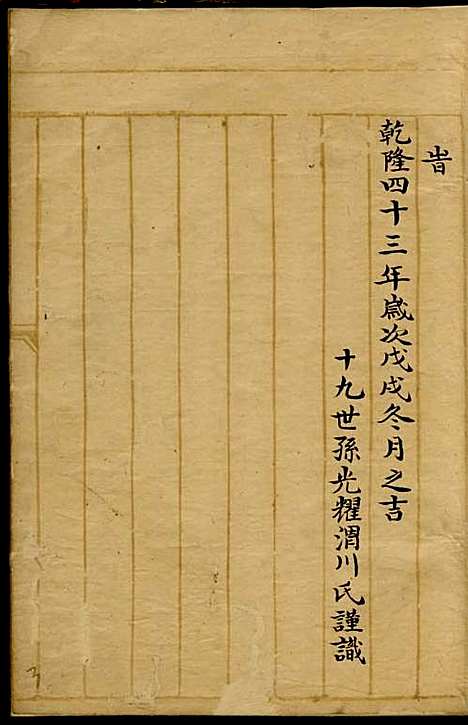 旹
乾隆四十三年歲次戊戌冬月之吉
十九世孫光耀渭川氏謹識